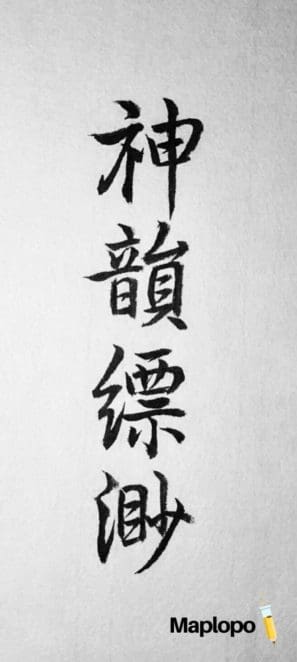 神韻縹渺
Maplopo